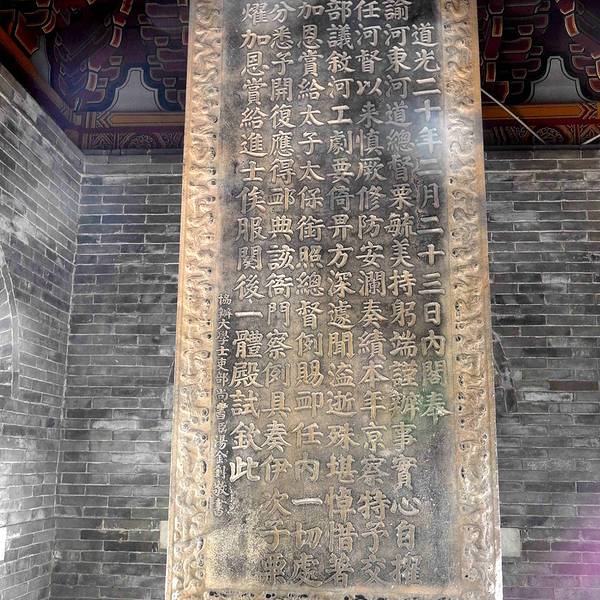 道光二十年二月二十三日內閣奉
諭河東河道總督栗毓美持躬端謹辦事實心自擢
任河督以来慎厥修防安瀾奏績本年京察特予交
部議敘河工劇要倚畀方深遽聞溘逝殊堪悼惜著
加恩賞給太子太保銜照總督例賜卹任內一切處
分悉予開復應得卹典該衙門察例具奏伊次子栗
燿加恩賞給進士俟服闋後一體殿試欽此
協辦大學士吏部尚書臣湯金釗敬書